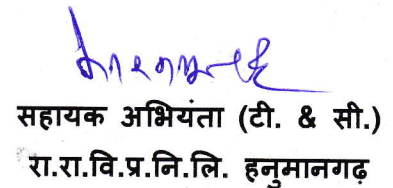 सहायक अभियंता (टी. & सी.)
रा.रा.वि.प्र.नि.लि. हनुमानगढ़